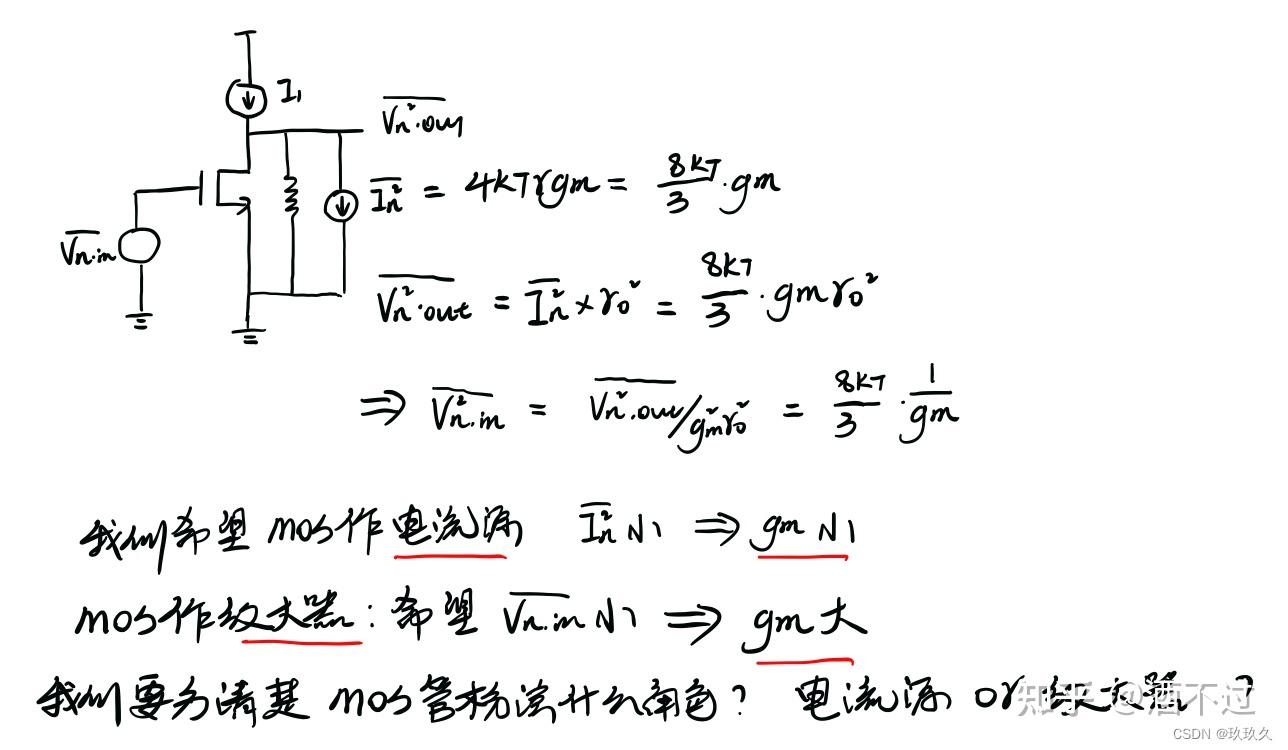 I₁
V̅ₙ²·out
V̅n·in
I̅n² = 4kTγgm = 8kT/3 · gm
V̅n²·out = I̅n² × r₀² = 8kT/3 · gm r₀²
⇒ V̅n²·in = V̅n²·out / gm²r₀² = 8kT/3 · 1/gm
我们希望 mos作电流源 I̅n² 小 ⇒ gm 小
mos作放大器：希望 V̅n·in 小 ⇒ gm 大
我们要分清楚 mos管扮演什么角色？ 电流源 or 放大器？
知乎 @酒不过
CSDN @玖玖久